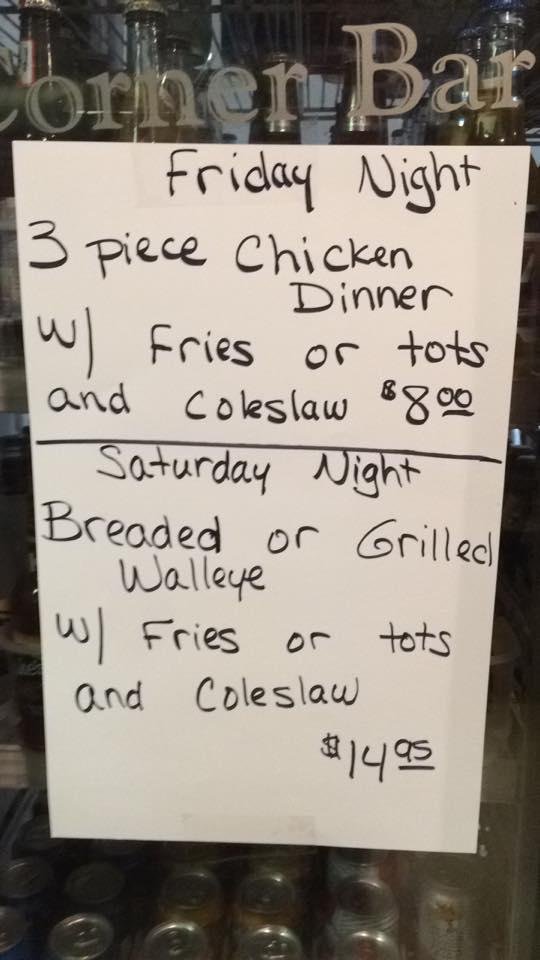 Corner Bar
Friday Night
3 piece Chicken
Dinner
w/ Fries or tots
and Coleslaw $8.00
Saturday Night
Breaded or Grilled
Walleye
w/ Fries or tots
and Coleslaw
$14.95